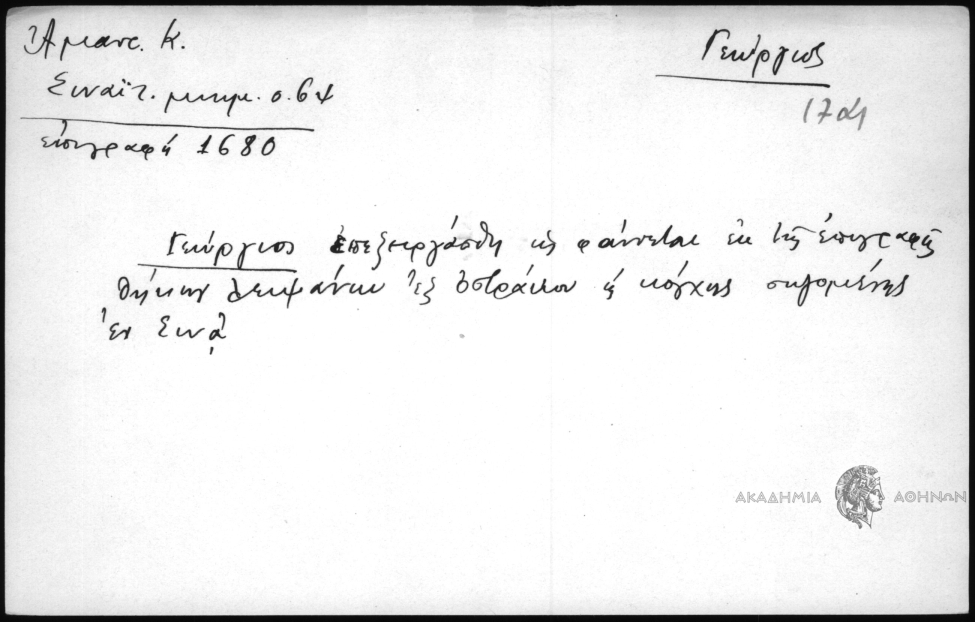 Ἄμαντ. Κ.
Γεώργιος
Σιναϊτ. μνημ. σ. 64
17ος
ἐπιγραφή 1680
Γεώργιος ἐπεξειργάσθη ὡς φαίνεται ἐκ τῆς ἐπιγραφῆς
θήκην λειψάνων ἐξ ὀστράκου ἢ κόγχης σῳζομένης
ἐν Σινᾷ
ΑΚΑΔΗΜΙΑ ΑΘΗΝΩΝ